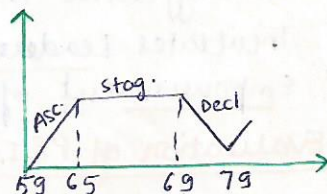 Asc.
stag.
Decl
59 65 69 79